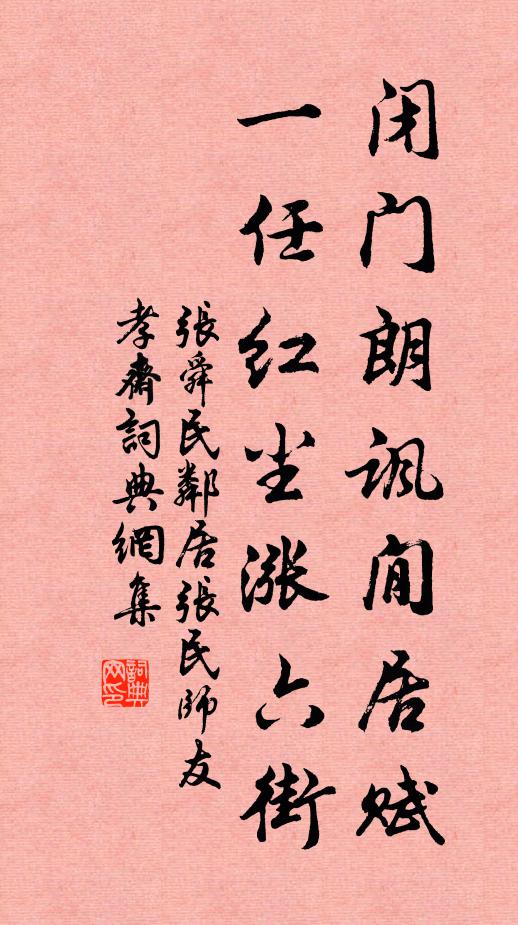 闭门朗讽闲居赋
一任红尘涨六街
張舜民鄰居張民師友
孝齋詞典網集
詞典网印